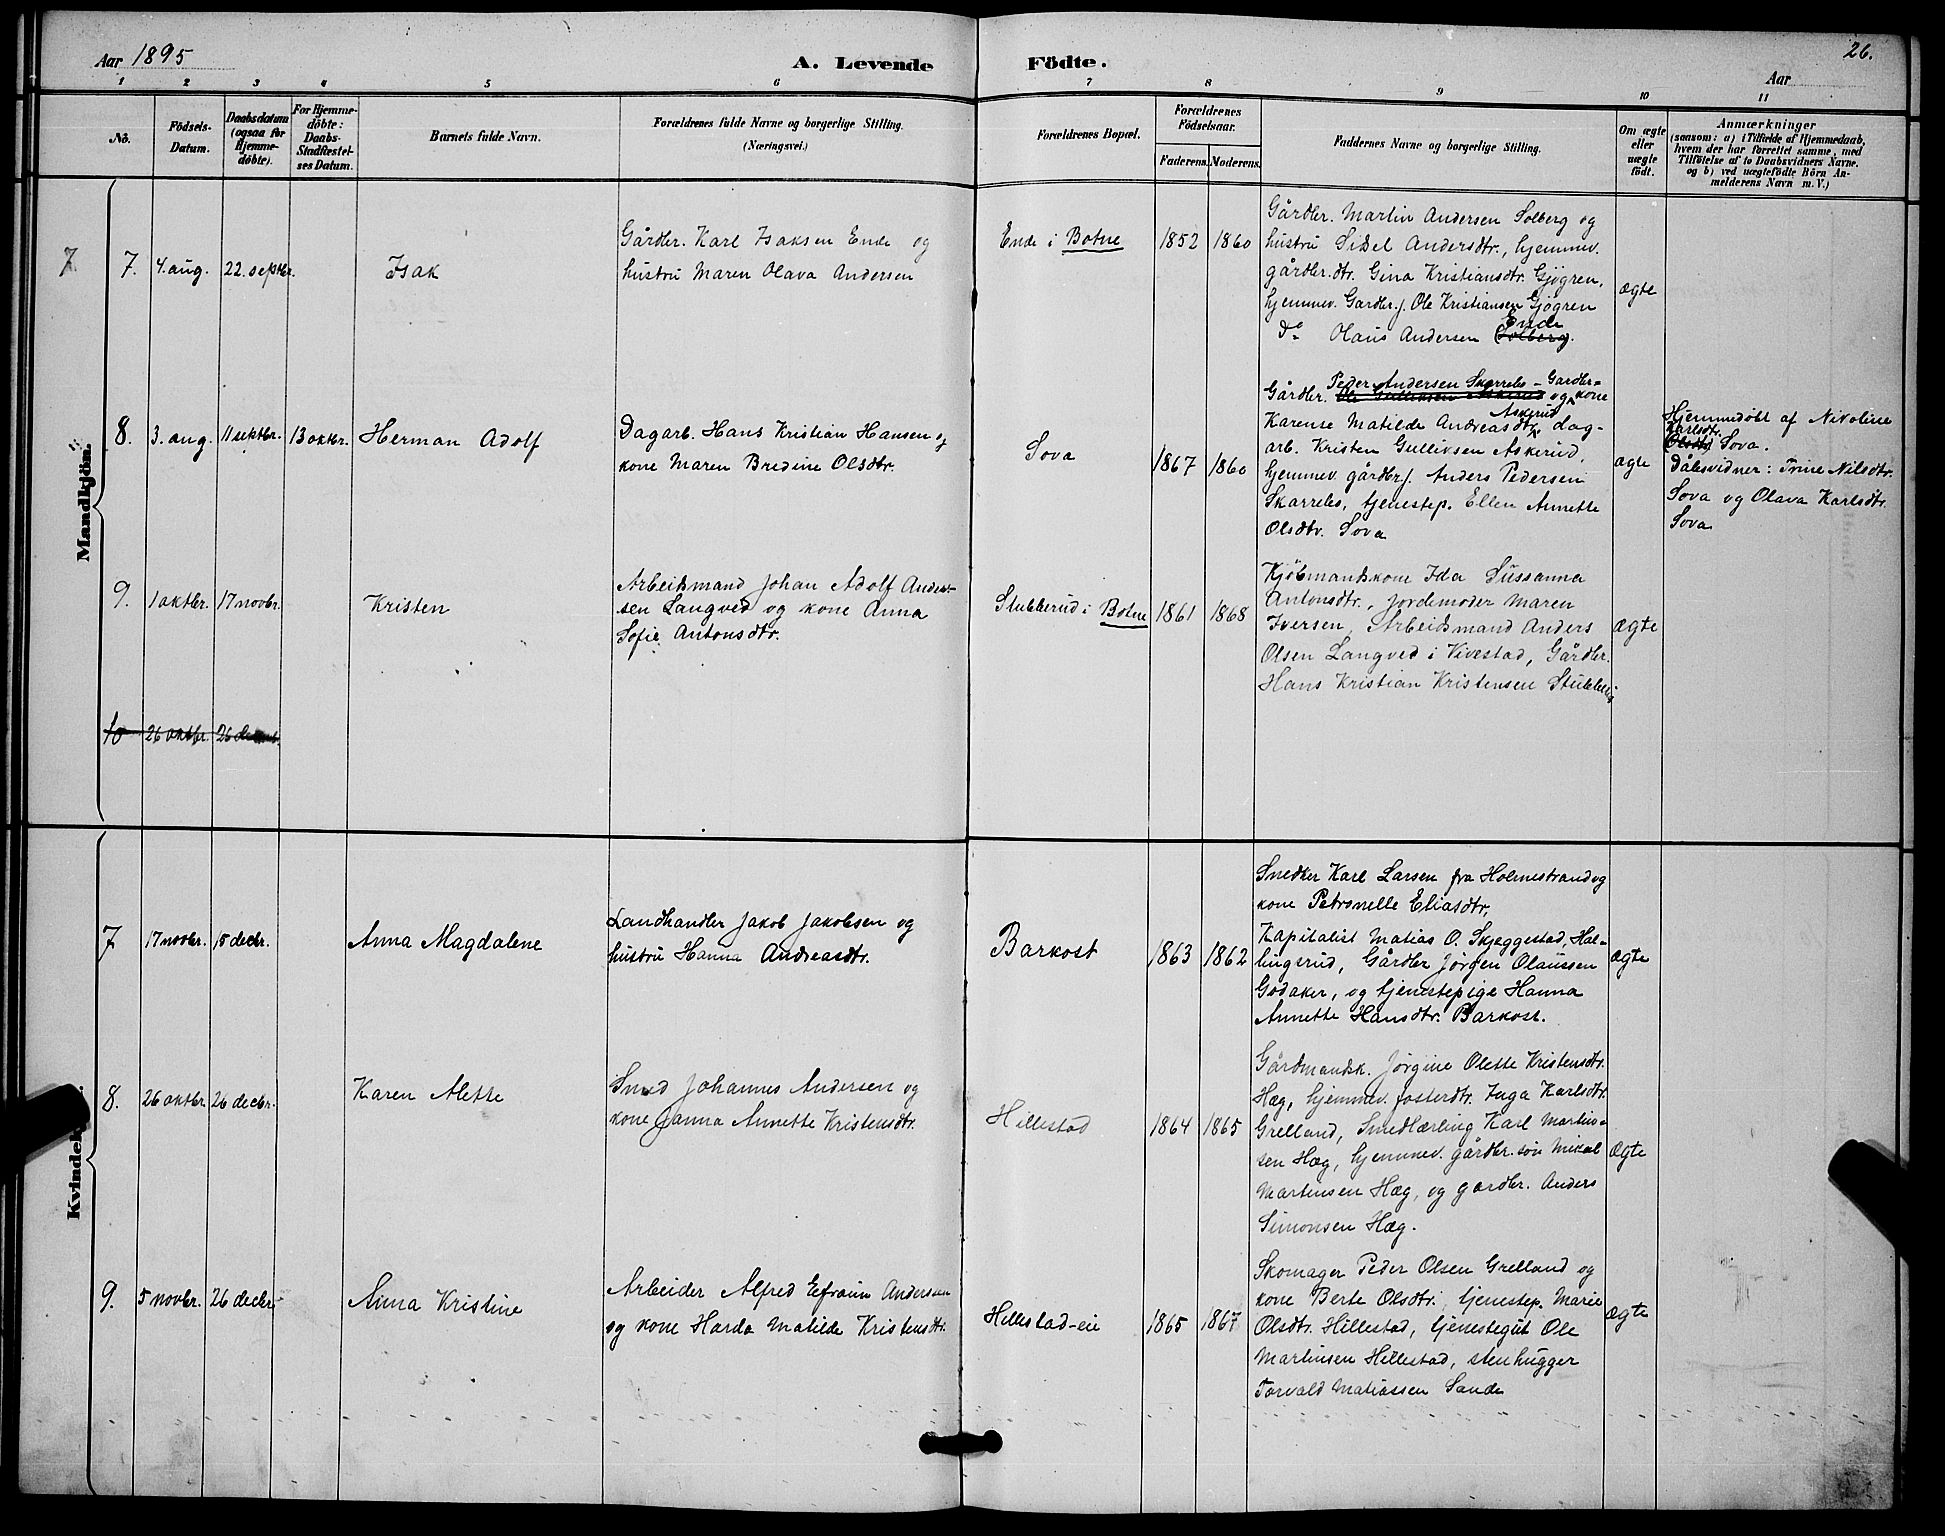 Aar 1895
A. Levende Födte.
26.
Aar
1 2 3 4 5 6 7 8 9 10 11
No.
Födsels-
Datum.
Daabsdatum
(ogsaa for
Hjemme-
döbte).
For Hjemme-
döbte:
Daabs-
Stadfæstel-
ses Datum.
Barnets fulde Navn.
Forældrenes fulde Navne og borgerlige Stilling.
(Næringsvei.)
Forældrenes Bopæl.
Forældrenes
Födselsaar.
Faderens. Moderens.
Faddernes Navne og borgerlige Stilling.
Om ægte
eller
uægte
födt.
Anmærkninger
(saasom: a) i Tilfælde af Hjemmedaab,
hvem der har forrettet samme, med
Tilföielse af to Daabsvidners Navne.
og b) ved uægtefödte Börn An-
melderens Navn m. V.)
Mandkjön.
7 7. 4. aug. 22. septbr.
Isak
Gårdbr. Karl Isaksen Ende og
hustru Maren Olava Andersen
Ende i Botne
1852 1860
Gårdbr. Martin Andersen Solberg og
hustru Sidsel Andersdtr., hjemmev.
gårdbr.dtr. Gina Kristiansdtr. Gjøgren,
hjemmev. Gardbr.s. Ole Kristiansen Gjøgren
Ende
Do Olaus Andersen (Solberg).
ægte
8. 3. aug. 11 septbr. 13 oktbr.
Herman Adolf
Dagarb. Hans Kristian Hansen og
kone Maren Bredine Olsdtr.
Sova
1867 1860
Peder Andersen Skarrebo - Gardbr=
Gårdbr. Ole Gullivsen Askerud og kone
Askerud
Karense Matilde Andreasdtr, dag-
arb. Kristen Gullivsen Askerud,
hjemmev. gårdbr.s. Anders Pedersen
Skarrebo, tjenestep. Ellen Annette
Olsdtr. Sova
ægte
Hjemmedøbt af Nikoline
Karlsdtr.
(Olsdtr) Sova.
Dåbsvidner: Trine Nilsdtr.
Sova og Olava Karlsdtr.
Sova
9. 1 oktbr. 17 novbr.
Kristen
Arbeidsmand Johan AdolfAnder-
sen Langved og kone Anna
Sofie Antonsdtr.
Stubberud i Botne
1861 1868
Kjøbmandskone Ida Sussanna
Antonsdtr., jordemoder Maren
Iversen, Arbeidsmand Anders
Olsen Langved i Vivestad, Gårdbr.
Hans Kristian Kristensen Stubberud
ægte
10 26 oktbr. 26 decbr.
Kvindekjön.
7 17 novbr. 15 decbr.
Anna Magdalene
Landhandler Jakob Jakobsen og
hustru Hanna Andreasdtr.
Barkost
1863 1862
Snedker Karl Larsen fra Holmestrand og
kone Petronelle Eliasdtr,
Kapitalist Matias O. Skjeggestad, Hal-
lingerud, Gårdbr Jørgen Olaussen
Godaker, og tjenestepige Hanna
Annette Hansdtr. Barkost.
ægte
8. 26 oktbr 26 decbr.
Karen Alette
Smed Johannes Andersen og
kone Janna Annette Kristensdtr.
Hillestad
1864 1865
Gårdmandsk. Jørgine Olette Kristensdtr.
Hæg, hjemmev. fosterdtr. Inga Karlsdtr.
Grelland, Smedlærling Karl Martin-
sen Hæg, hjemmev. gårdbr. søn Mikal
Martinsen Hæg, og gardbr. Anders
Simonsen Hæg.
ægte
9. 5 novbr. 26 decbr.
Anna Kristine
Arbeider Alfred Eefraim Andersen
og kone Harda Matilde Kristensdtr.
Hillestad-eie
1865 1867
Skomager Peder Olsen Grelland og
kone Berte Olsdtr., tjenestep. Marie
Olsdtr. Hillestad, tjenestegut Ole
Martinsen Hillestad, stenhugger
Torvald Matiassen Sande
ægte